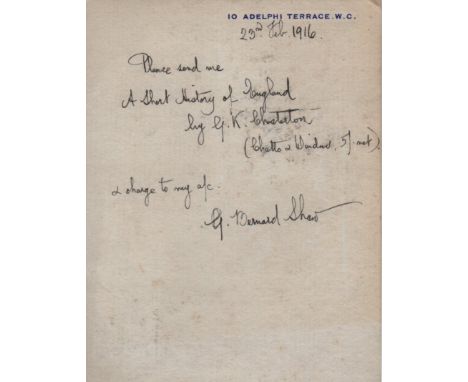 10 ADELPHI TERRACE. W.C.
23rd Feb. 1916.
Please send me
A Short History of England
by G. K. Chesterton
(Chatto & Windus, 5/- net).
& charge to my a/c.
G. Bernard Shaw